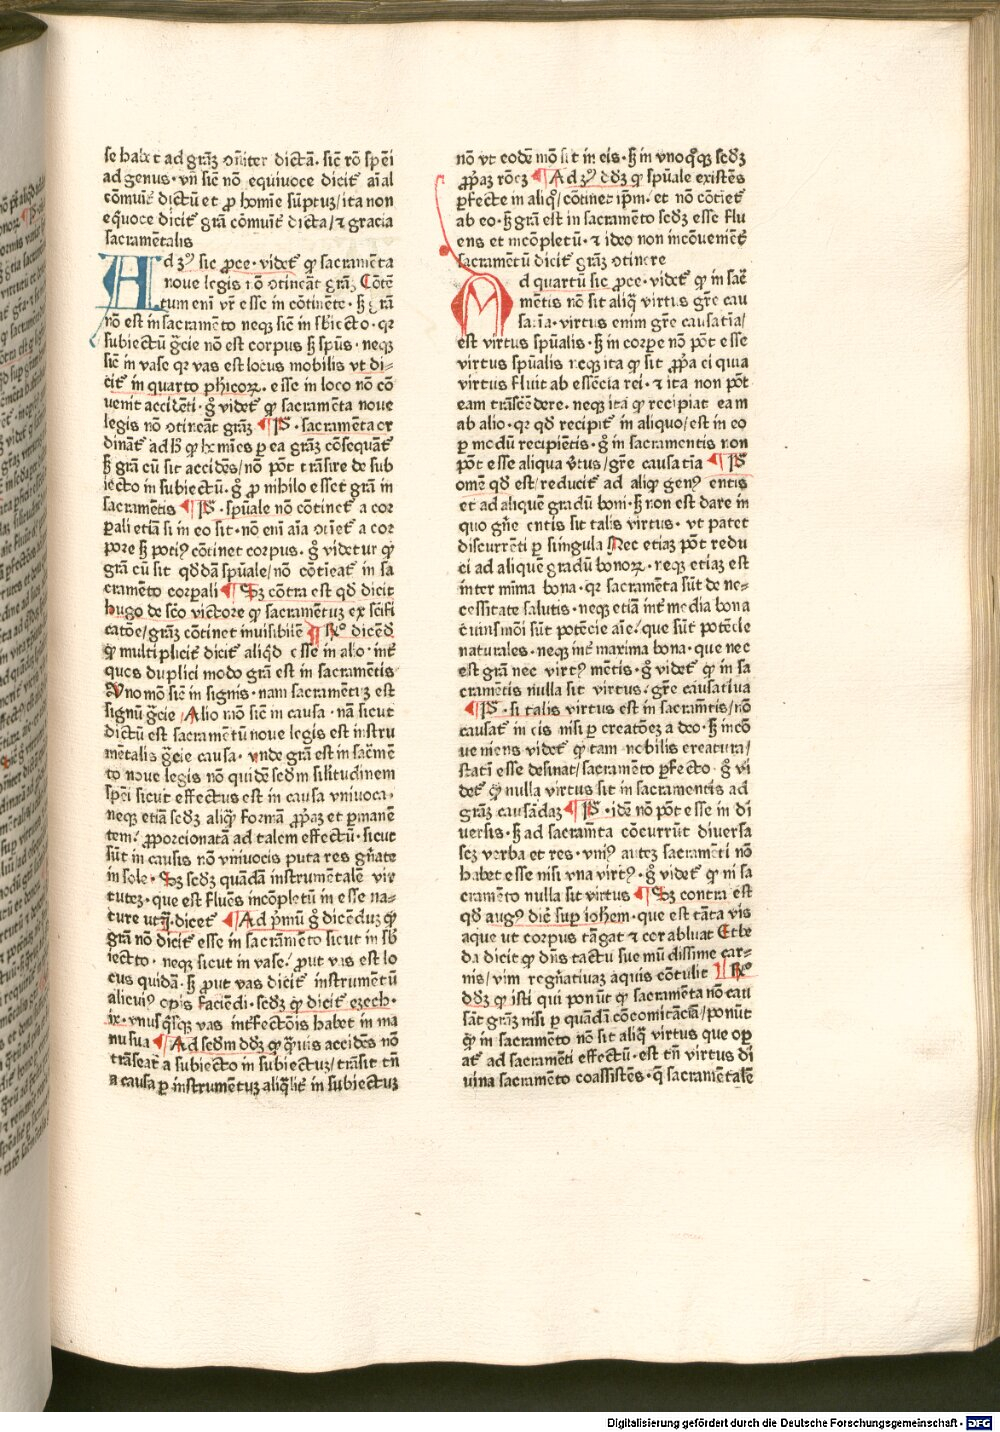 se habet ad grãꝫ cõiter dictã. sic̄ rõ spēi
ad genus. vñ sic̄ nõ equiuoce dicit̃ aīal
cõmuit̃ dictũ et ꝓ homīe sũptuꝫ/ita non
eq̃uoce dicit̃ grã cõmuit̃ dicta/⁊ gracia
sacramẽtalis
Ad ꝫꝰ sic ꝓce. videt̃ ꝙ sacramẽta
noue legis nõ ↄtineãt grãꝫ Cõtẽ
tum eni vr̃ esse in cõtinẽte. sꝫ grã
nõ est in sacramẽto neqꝫ sic̄ in sb̃iecto. qꝛ
subiectũ gr̃cie nõ est corpus sꝫ spũs. neqꝫ
sic̄ in vase qꝛ vas est locus mobilis vt di⸗
cit̃ in quarto phicoꝝ. esse in loco nõ cõ
uenit accidẽti. gͦ videt̃ ꝙ sacramẽta noue
legis nõ ↄtineãt grãꝫ ¶ Pͣ. sacramẽta oꝛ
dinãt̃ ad hͦ ꝙ hoīes ꝑ ea grãꝫ cõsequãt̃
sꝫ grã cũ sit accidẽs/nõ põt trãsire de sub
iecto in subiectũ. gͦ ꝓ nihilo esset grã in
sacramẽtis ¶ Pͣ. spũale nõ cõtinet̃ a coꝛ
ꝑali etiã si in eo sit. nõ eni aīa ↄtinet̃ a coꝛ
poꝛe sꝫ potiꝰ cõtinet coꝛpus. gͦ videtur ꝙ
grã cũ sit qd̃dã spũale/nõ cõtieat̃ in sa
cramẽto coꝛpali ¶ Sꝫ cõtra est qd̃ dicit
hugo de sc̃o victoꝛe ꝙ sacramẽtuꝫ ex sc̃ifi
catõe/grãꝫ cõtinet inuisibilẽ ¶ Rͦ dicẽd̃
ꝙ multiplicit̃ dicit̃ aliqd̃ esse in alio. int̃
ques duplici modo grã est in sacramẽtis
Uno mõ sic̄ in signis. nam sacramẽtuꝫ est
signũ gr̃cie Alio mõ sic̄ in causa. nã sicut
dictũ est sacramẽtũ noue legis est instru
mẽtalis gr̃cie causa. vnde grã est in sac̃mẽ
to noue legis nõ quidẽ scd̃m silitudinem
spẽi sicut effectus est in causa vniuoca.
neqꝫ etiã scd̃ꝫ aliq̃ foꝛmã ꝓpãꝫ et ꝑmanẽ
tem/ ꝓpoꝛcionatã ad talem effectũ. sicut
sũt in causis nõ vniuocis puta res gñate
in sole. Sꝫ scd̃ꝫ quãdã instrumẽtalẽ vir
tuteꝫ. que est fluẽs incõpletũ in esse na⸗
ture ut iꝗ. dicet̃ ¶ Ad pͥmũ gͦ dicẽduꝫ ꝙ
grã nõ dicit̃ esse in sacramẽto sicut in sb̃
iecto. neqꝫ sicut in vase/ ꝓut vas est lo
cus quidã. sꝫ ꝓut vas dicit̃ instrumẽtũ
alicuiꝰ opis faciẽdi. scd̃ꝫ ꝙ dicit̃ eꝫech.
ix. vnusq̃sqꝫ vas int̃fectõis habet in ma
nu sua ¶ Ad scd̃m dd̃ꝫ ꝙ q̃uis accidẽs nõ
trãseat a subiecto in subiectuꝫ/trãsit tñ
a causa ꝑ instrumẽtuꝫ aliq̃lit̃ in subiectuꝫ
nõ vt eodẽ mõ sit in eis. sꝫ in vnoq̃qꝫ scd̃ꝫ
ꝓpãꝫ rõeꝫ ¶ Ad ꝫꝰ dd̃ꝫ ꝙ spũale existẽs
ꝑfecte in aliqͦ/cõtinet ip̃m. et nõ cõtiet̃
ab eo. sꝫ grã est in sacramẽto scd̃ꝫ esse flu
ens et incõpletũ. ⁊ ideo non incõueniẽt̃
sacramẽtũ dicit̃ grãꝫ ↄtinere
Ad quartũ sic ꝓce. videt̃ ꝙ in sac̃
mẽtis nõ sit aliq̃ virtus gr̃e cau
satiua. virtus enim gr̃e causatīa/
est virtus spũalis. sꝫ in coꝛꝑe nõ põt esse
virtus spũalis neqꝫ ita ꝙ sit ꝓpa ei quia
virtus fluit ab essẽcia rei. ⁊ ita non põt
eam trãscẽdere. neqꝫ ita ꝙ recipiat eam
ab alio. qꝛ qd̃ recipit̃ in aliquo/est in eo
ꝑ modũ recipiẽtis. gͦ in sacramentis non
põt esse aliqua v̓tus/gr̃e causatīa ¶ Pͣ
omẽ qd̃ est/reducit̃ ad aliqͦ genꝰ entis
et ad aliquẽ gradũ boni. sꝫ non est dare in
quo gñe entis sit talis virtus. vt patet
discurrẽti ꝑ singula Nec etiaꝫ põt redu
ci ad aliquẽ gradũ bonoꝝ. neqꝫ etiaꝫ est
inter miīma bona. qꝛ sacramẽta sũt de ne⸗
cessitate salutis. neqꝫ etiã int̃ media bona
cuiusmõi sũt potẽcie aīe/ que sũt potẽcie
naturales. neqꝫ int̃ maxima bona. que nec
est grã nec virtꝰ mẽtis. gͦ videt̃ ꝙ in sa
cramẽtis nulla sit virtus/gr̃e causatiua
¶ Pͣ. si talis virtus est in sacramẽtis/nõ
causat̃ in eis nisi ꝑ creatõeꝫ a deo. sꝫ incõ
ueniens videt̃ ꝙ tam nobilis creatura/
statĩ esse desinat/sacramẽto ꝑfecto. gͦ vi
det̃ ꝙ nulla virtus sit in sacramentis ad
grãꝫ causãdaꝫ ¶ Pͣ. idẽ nõ põt esse in di
uersis. sꝫ ad sacramẽta cõcurrũt diuersa
scꝫ verba et res. vniꝰ auteꝫ sacramẽti nõ
habet esse nisi vna virtꝰ. gͦ videt̃ ꝙ in sa
cramẽto nulla sit virtus ¶ Sꝫ contra est
qd̃ augꝰ dic̃ suꝑ ioh̃em. que est tãta vis
aque ut coꝛpus tãgat ⁊ coꝛ abluat Et be
da dicit ꝙ dñs tactu sue mũdissime car⸗
nis/vim regñatiuaꝫ aquis cõtulit ¶ Rͦ
dd̃ꝫ ꝙ isti qui ponũt ꝙ sacramẽta nõ cau
sãt grãꝫ nisi ꝑ quãdã cõcomitãciã/ponũt
ꝙ in sacramẽto nõ sit aliq̃ virtus que oꝑ
at̃ ad sacramẽti effectũ. est tñ virtus di
uina sacramẽto coassistẽs. q̃ sacramẽtalẽ
Digitalisierung gefördert durch die Deutsche Forschungsgemeinschaft - DFG